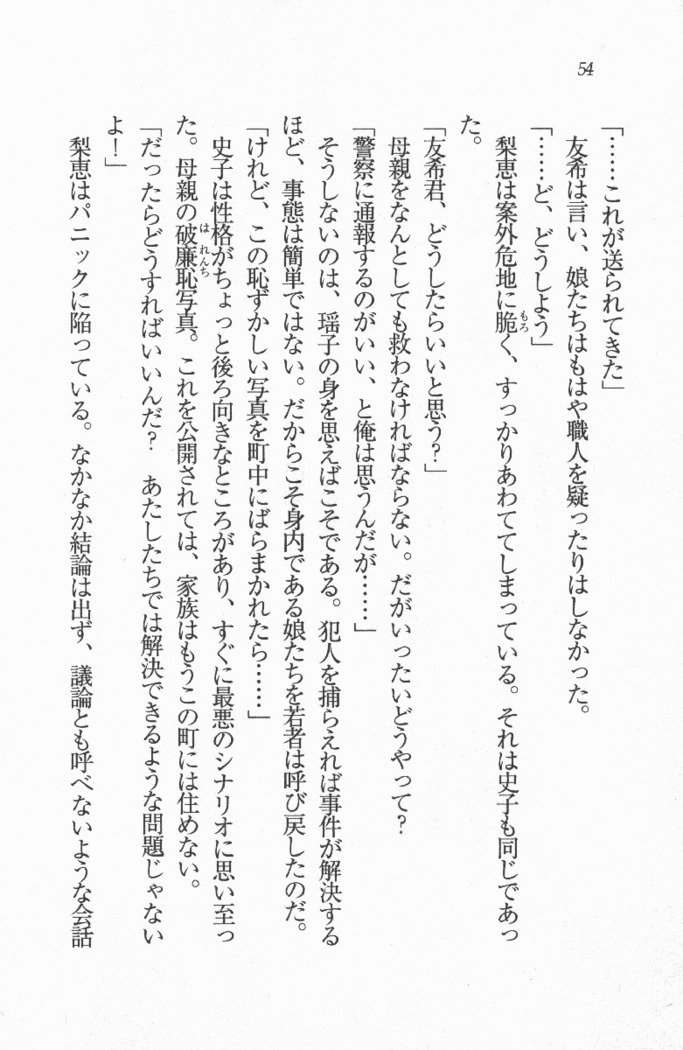 54
「……これが送られてきた」
友希は言い、娘たちはもはや職人を疑ったりはしなかった。
「……ど、どうしよう」
梨恵は案外危地に脆く、すっかりあわててしまっている。それは史子も同じであっ
もろ
た。
「友希君、どうしたらいいと思う?」
母親をなんとしても救わなければならない。だがいったいどうやって?
「警察に通報するのがいい、と俺は思うんだが……」
そうしないのは、瑶子の身を思えばこそである。犯人を捕らえれば事件が解決する
ほど、事態は簡単ではない。だからこそ身内である娘たちを若者は呼び戻したのだ。
「けれど、この恥ずかしい写真を町中にばらまかれたら……」
史子は性格がちょっと後ろ向きなところがあり、すぐに最悪のシナリオに思い至っ
た。母親の破廉恥写真。これを公開されては、家族はもうこの町には住めない。
はれんち
「だったらどうすればいいんだ? あたしたちでは解決できるような問題じゃない
よ!」
梨恵はパニックに陥っている。なかなか結論は出ず、議論とも呼べないような会話